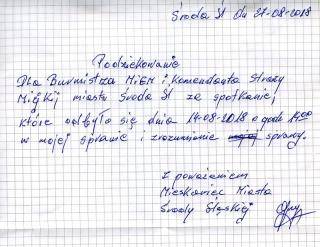 Środa Śl dn 27-08-2018
Podziękowanie
Dla Burmistrza MiGM i Komendanta Straży
Miejskij miasta Środa Śl za spotkanie,
które odbyło się dnia 14-08-2018 o godz 11.00
w mojej sprawie i zrozumienie sprawy.
Z poważaniem
Mieszkaniec Miasta
Środy Śląskiej